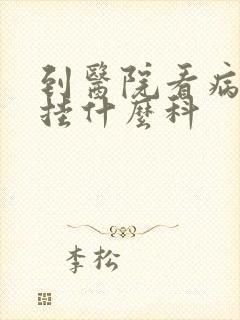 到醫院看病
挂什麼科
李松